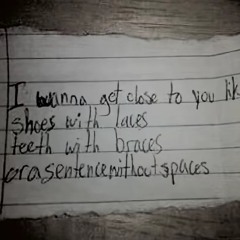 I wanna get close to you lik
shoes with laces
teeth with braces
orasentencewithoutspaces